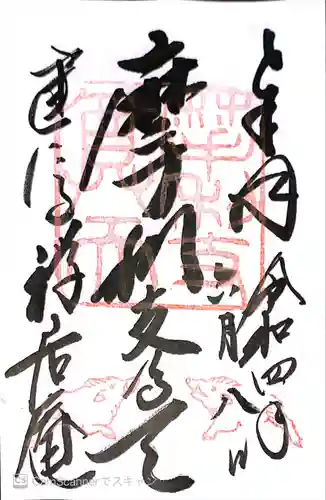 奉拝
令和四年
六月八日
摩利支尊天
建仁寺禅居庵
CamScannerでスキャン